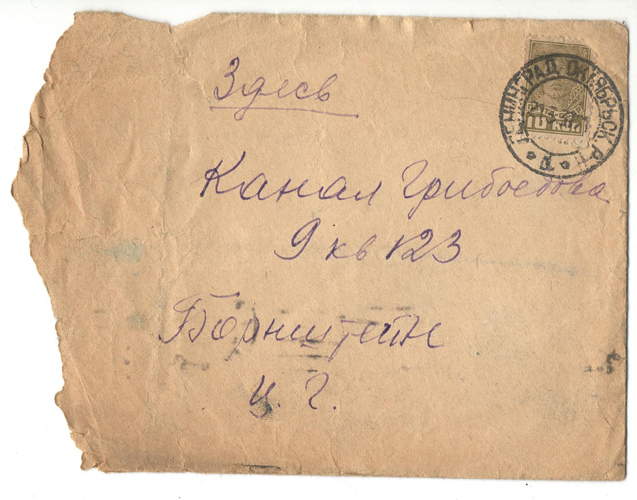 Здесь
ЛЕНИНГРАД ОКТЯБРЬСК. Р-Н
10 КОП
Канал Грибоедова
9 кв 123
Борнштейн
И. Г.